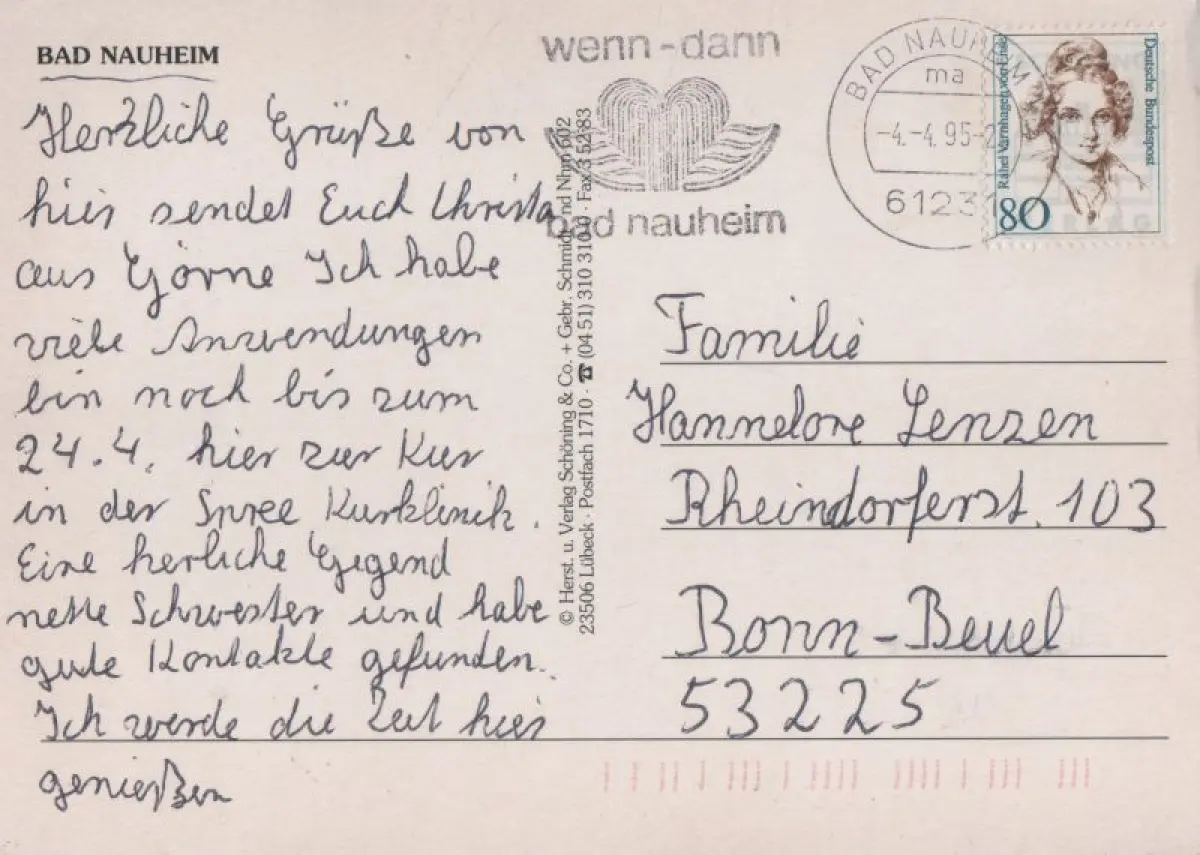 BAD NAUHEIM
Herzliche Grüße von
hier sendet Euch Christa
aus Görne Ich habe
viele Anwendungen
bin noch bis zum
24.4. hier zur Kur
in der Spree Kurklinik.
Eine herliche Gegend
nette Schwester und habe
gute Kontakte gefunden.
Ich werde die Zeit hier
genießen
© Herst. u. Verlag Schöning & Co. + Gebr. Schmidt
23506 Lübeck · Postfach 1710 · ☎ (04 51) 310 310 · Fax 3 52 83
Nhm 602
wenn-dann
bad nauheim
BAD NAUHEIM
ma
-4.-4.95-2
6123
Rahel Varnhagen von Ense
Deutsche Bundespost
80
Familie
Hannelore Lenzen
Rheindorferst. 103
Bonn-Beuel
53225